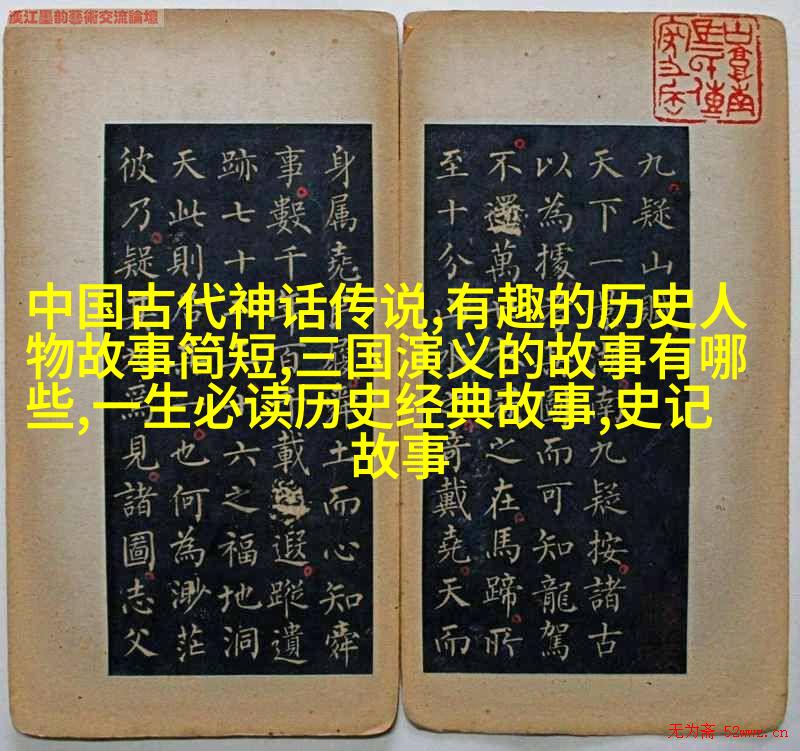 漢江墨韵藝術交流論壇
九疑山賦
天下一
以為據而可知龍駕
不還萬之在馬蹄所
至十分奇戴堯天而
身属堯土而心知舜
事數千百載遐蹤遺
跡七十六之福地洞
天此則也何為渺茫
彼乃疑為見諸圖志父
九疑按諸古
中国古代神话传说,有趣的历史人
物故事简短,三国演义的故事有哪
些,一生必读历史经典故事,史记
故事
无为斋 52wwz.cn